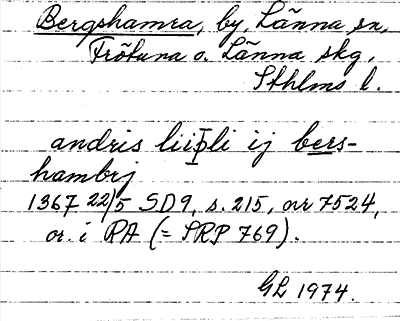 Bergshamra, by, Länna sn,
Fröt​una o. Länna skg,
Sthlms l.
andris liipli ij bers-
hambrj
1367 22/5 SD9, s. 215, nr 7524,
or. i RA (= SRP 769).
GL 1974.